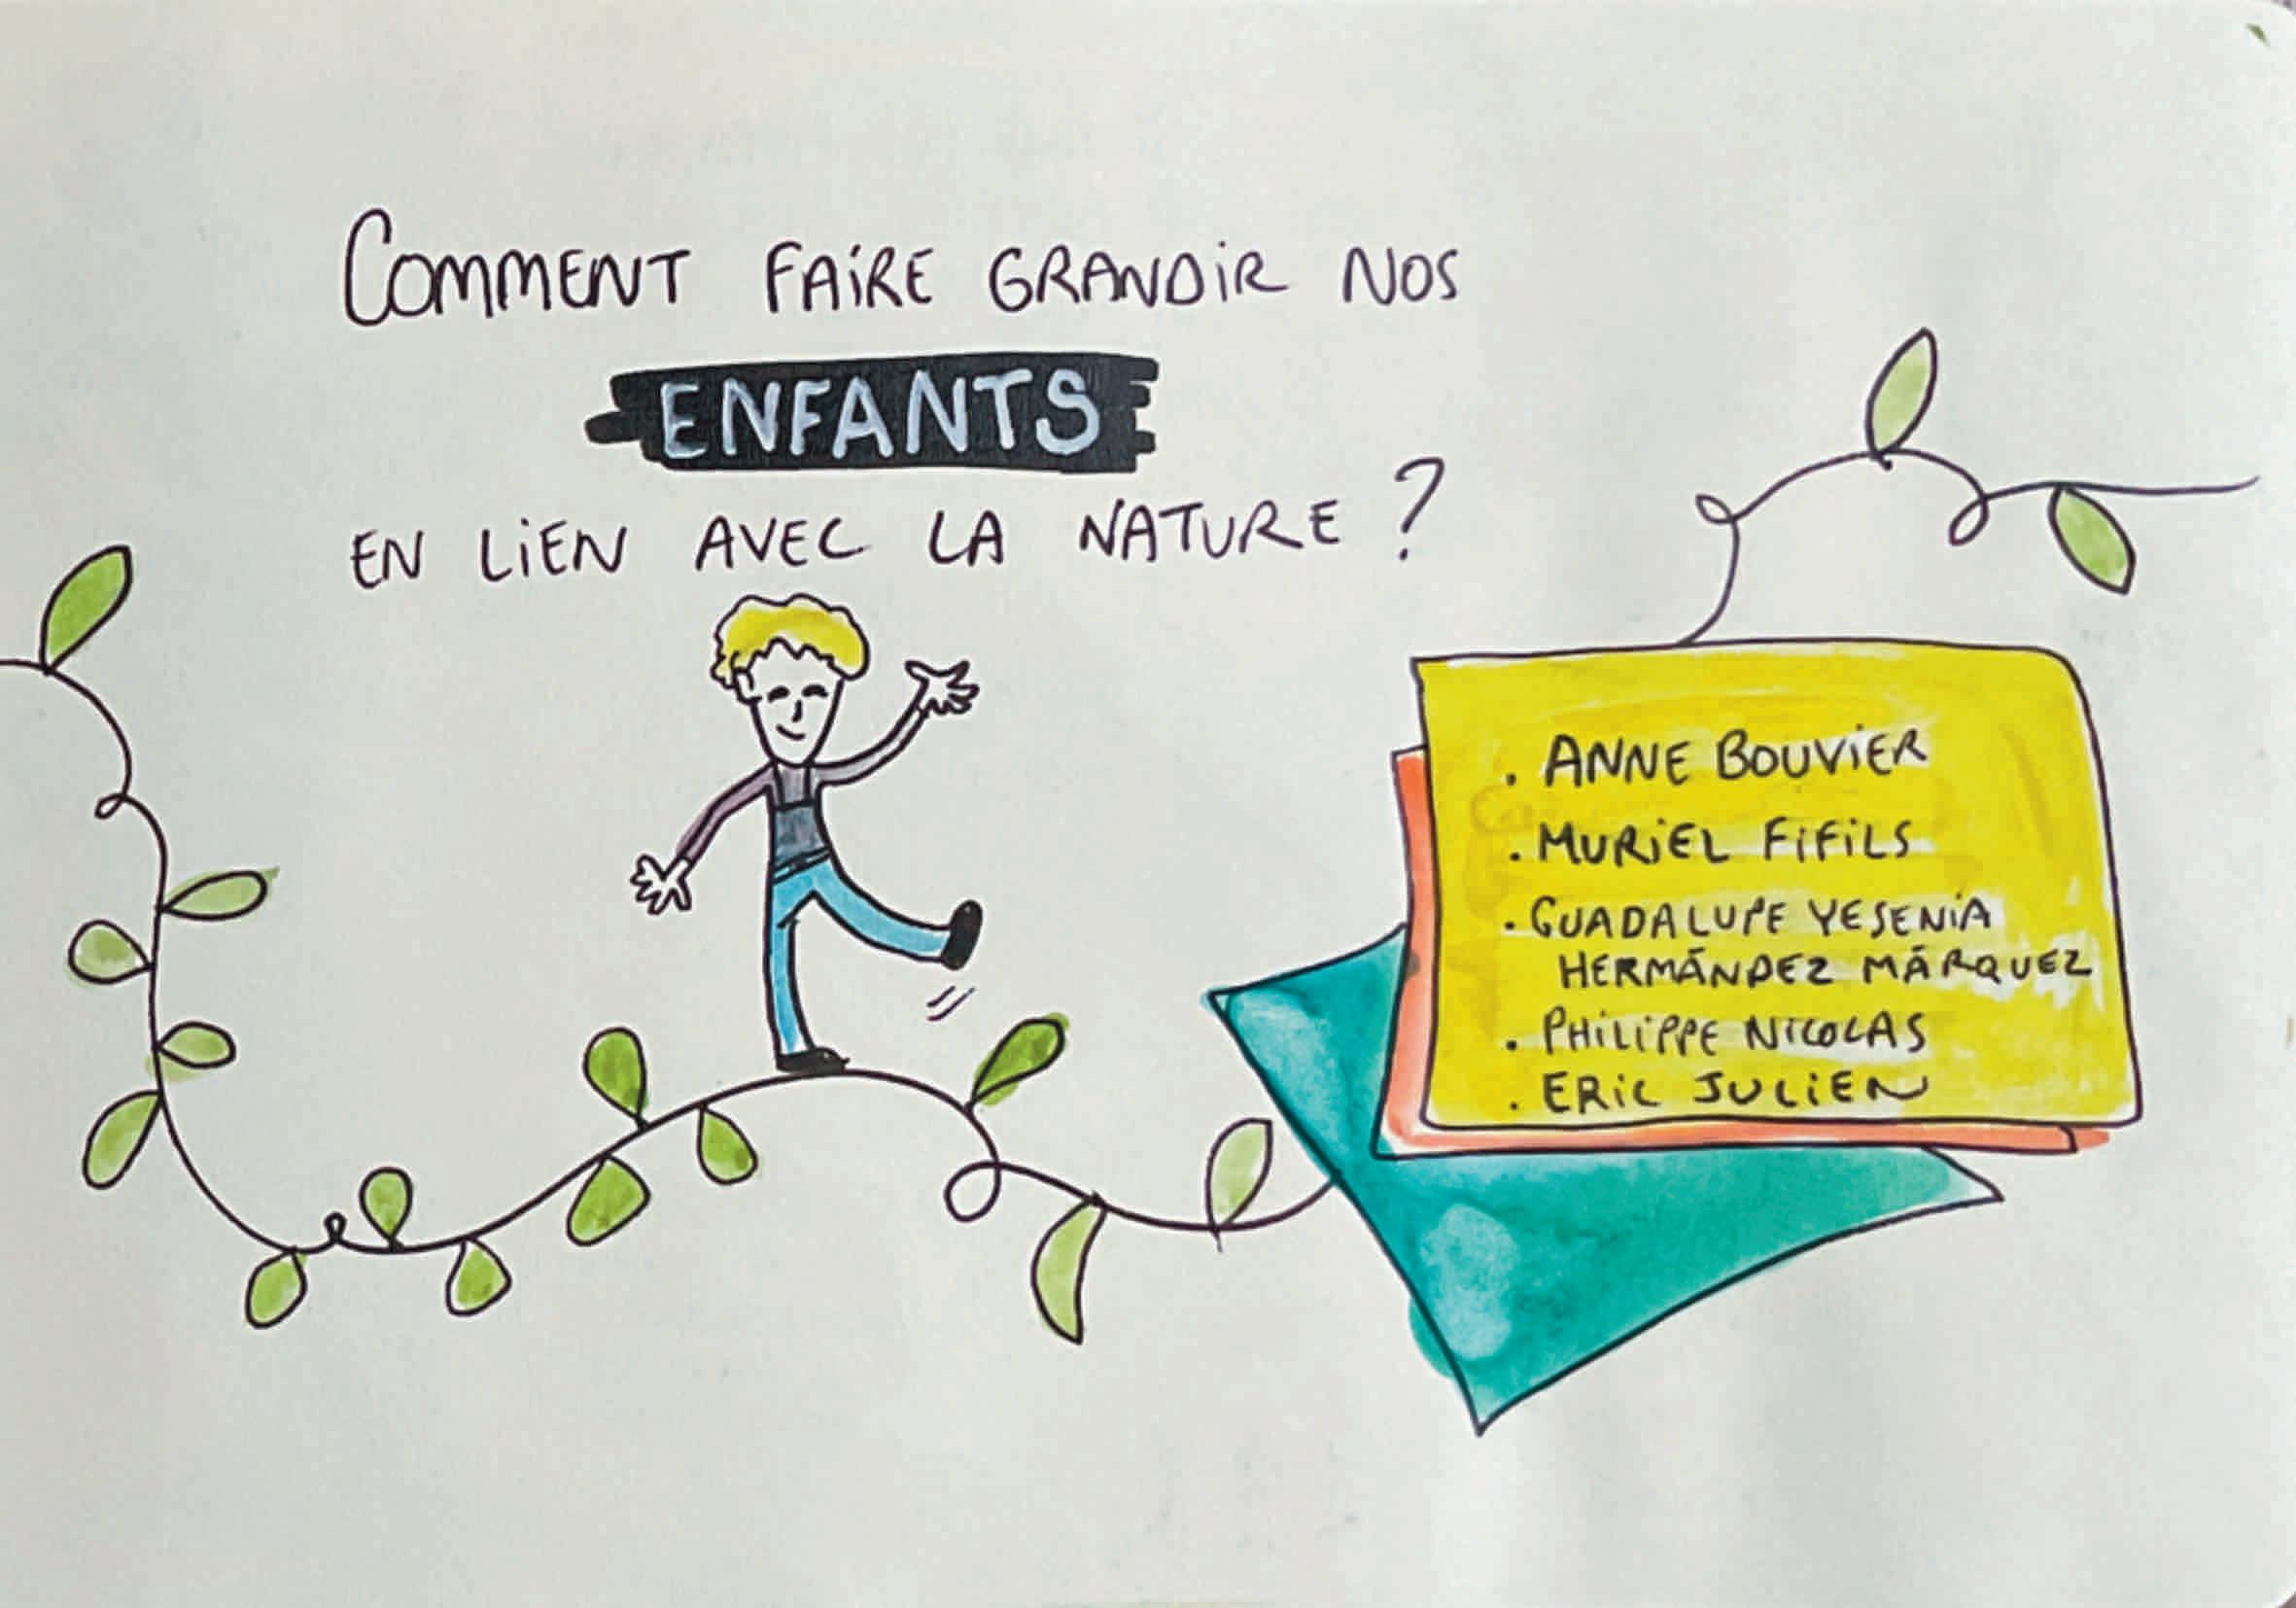 COMMENT FAIRE GRANDIR NOS
ENFANTS
EN LIEN AVEC LA NATURE ?
. ANNE BOUVIER
. MURIEL FIFILS
. GUADALUPE YESENIA
HERMÁNDEZ MÁRQUEZ
. PHILIPPE NICOLAS
. ERIC JULIEN